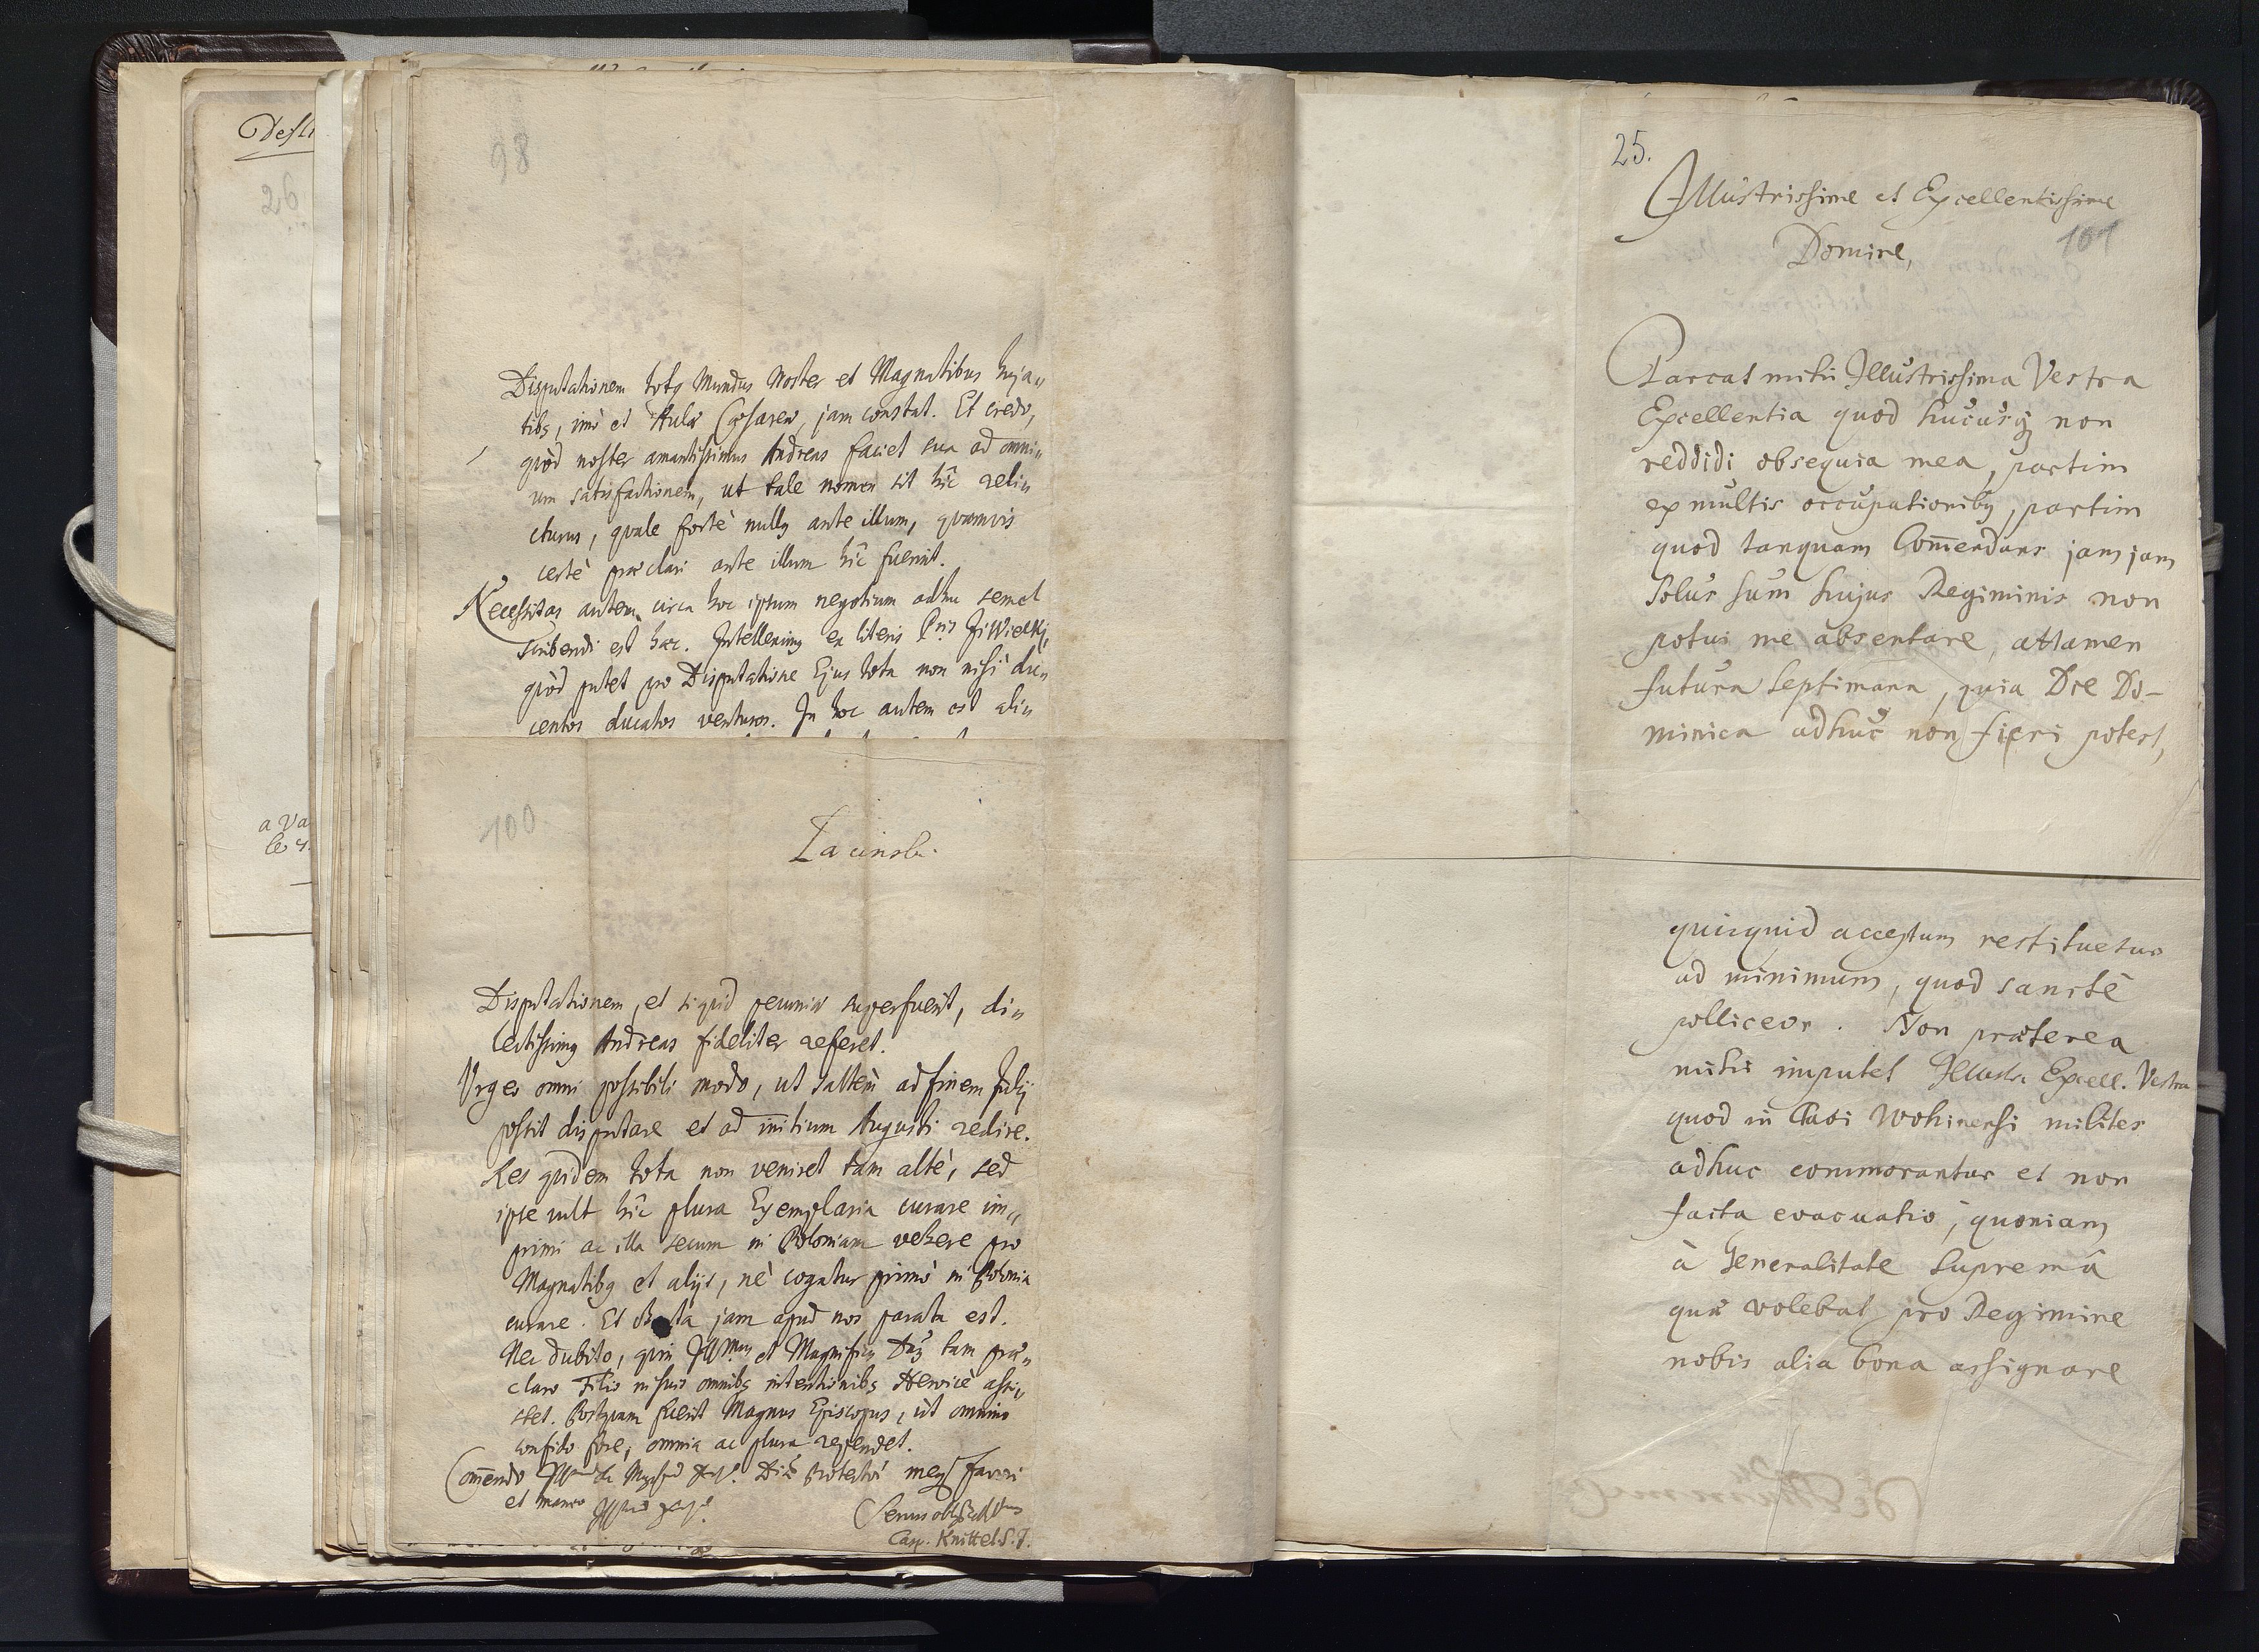 Desti
26
a va
98
Disputationem totq Mundus Noster et Magnatibus huja„
tibs, imò et Aulæ Cæsareæ, jam constat. Et credo,
quòd noster amantissimus Andreas faciet sua ad omni„
um satisfactionem, ut tale nomen sit hîc reli„
cturus, quale fortè nullq ante illum, quamvis
certè præclari ante illum hîc fuerint.
Necessitas autem circa hoc ipsum negotium adhu semel
scribendi est hæc. Intelleximq ex literis
quòd putet pro Disputatione Ejus tota non nisi du„
centos ducatos venturos. In hoc autem est ali„
100
Zacinsk.
Disputationem, et siquid pecuniæ superfuerit, di„
lectissimq Andreas fideliter referet.
Urgeo omni possibili modo, ut saltem ad finem Julij
possit disputare et ad initium Augusti redire.
Res quidem tota non veniret tam altè, sed
ipse vult hîc plura Exemplaria curare im„
primi ac illa secum in Poloniam vehere pro
Magnatibq et alijs, nè cogatur primò in Polonia
curare. Et jam apud nos parata est.
Nec dubito, quin et tam præ„
claro Filio in suis omnibq intentionibs Heroicè assi„
stet. Postquam fuerit Magnus Episcopus, ut omnino
confido fore, omnia ac plura rependet.
Com̄endo favori
et maneo
Casp. Knittel S. J.
25.
Illustrissime et Excellentissime
Domine,
101
Parcat mihi Illustrissima Vestra
Excellentia quod hucusq non
reddidi obsequia mea, partim
ex multis occupationibq, partim
quod tanquam Com̄endans jam jam
Solus sum hujus Regiminis non
potui me absentare, attamen
futura Septimana, quia Die Do-
minica adhuc non fieri potest,
quicquid acceptum restituetur
ad minimum, quod sanctè
polliceor. Non præterea
mihi imputet Illustr. Excell. Vestra
quod in Clavi Wohinensi milites
adhuc commorantur et non
facta evacuatio, quoniam
à Generalitate Supremâ
quæ volebat pro Regimine
nobis alia bona assignare